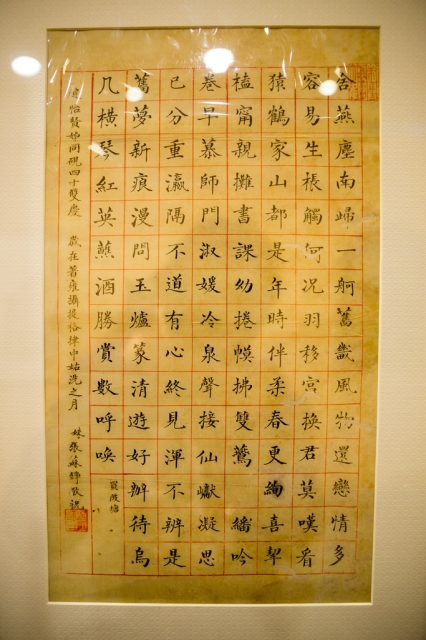 舍燕塵南歸一舸舊畿風物還戀情多
容易生棖觸何況羽移宮換君莫嘆看
猿鶴家山都是年時伴柔春更絢喜挈
榼甯親攤書課幼捲幙拂雙鸞繙吟
卷早慕師門淑媛冷泉聲接仙巘凝思
已分重瀛隔不道有心終見渾不辨是
舊夢新痕漫問玉爐篆清遊好辦待烏
几橫琴紅英蘸酒勝賞數呼喚
買陂塘
怡賢姊同硯四十雙慶 歲在著雍攝提格律中姑洗之月 妹張蘇錚敬祝